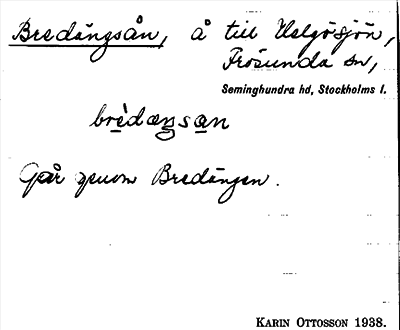 Bredängsån, å till Helgösjön,
Frösunda sn,
Seminghundra hd, Stockholms l.
brèdæŋsan
Går genom Bredängen.
KARIN OTTOSSON 1938.